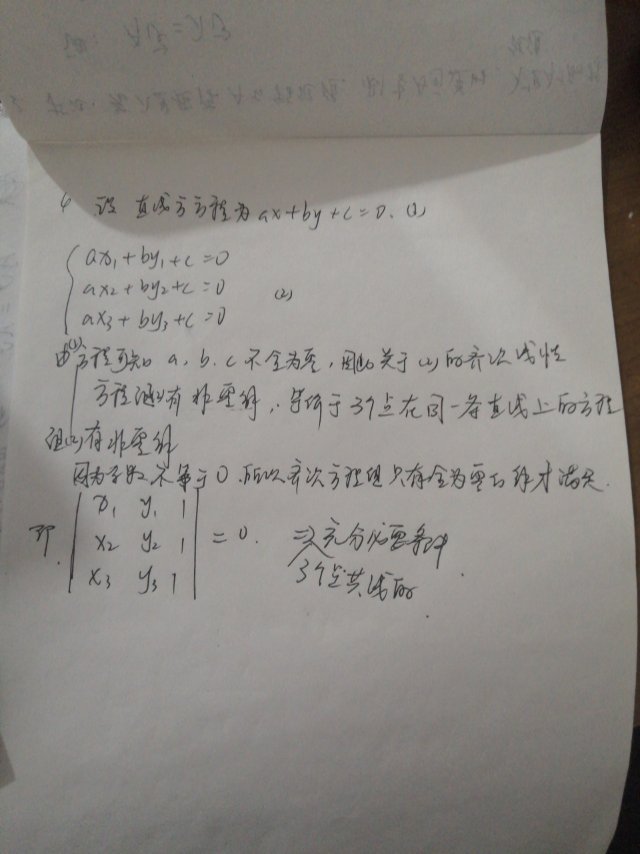 设 直线方方程为 ax+by+c=0. (1)
ax₁+by₁+c=0
ax₂+by₂+c=0 (2)
ax₃+by₃+c=0
由(1)方程可知 a, b, c 不全为零, 因此关于(2)的齐次线性
方程组必有非零解, 等价于3个点在同一条直线上的方程
组(2)有非零解
因为系数不等于0, 所以齐次方程组只有全为零的解才满足.
即 | x₁ y₁ 1 |
| x₂ y₂ 1 | = 0. => 充分必要条件
| x₃ y₃ 1 | 3个点共线的